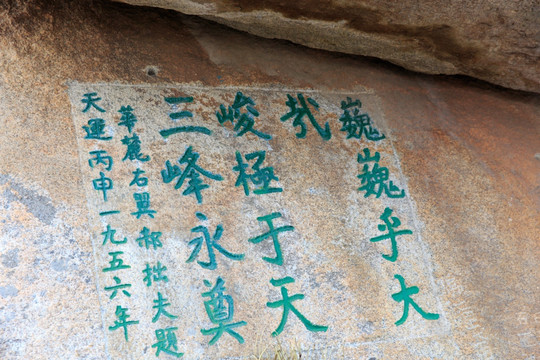 巍巍乎大
哉
峻極于天
三峰永奠
華麓右翼郝拙夫題
天運丙申一九五六年